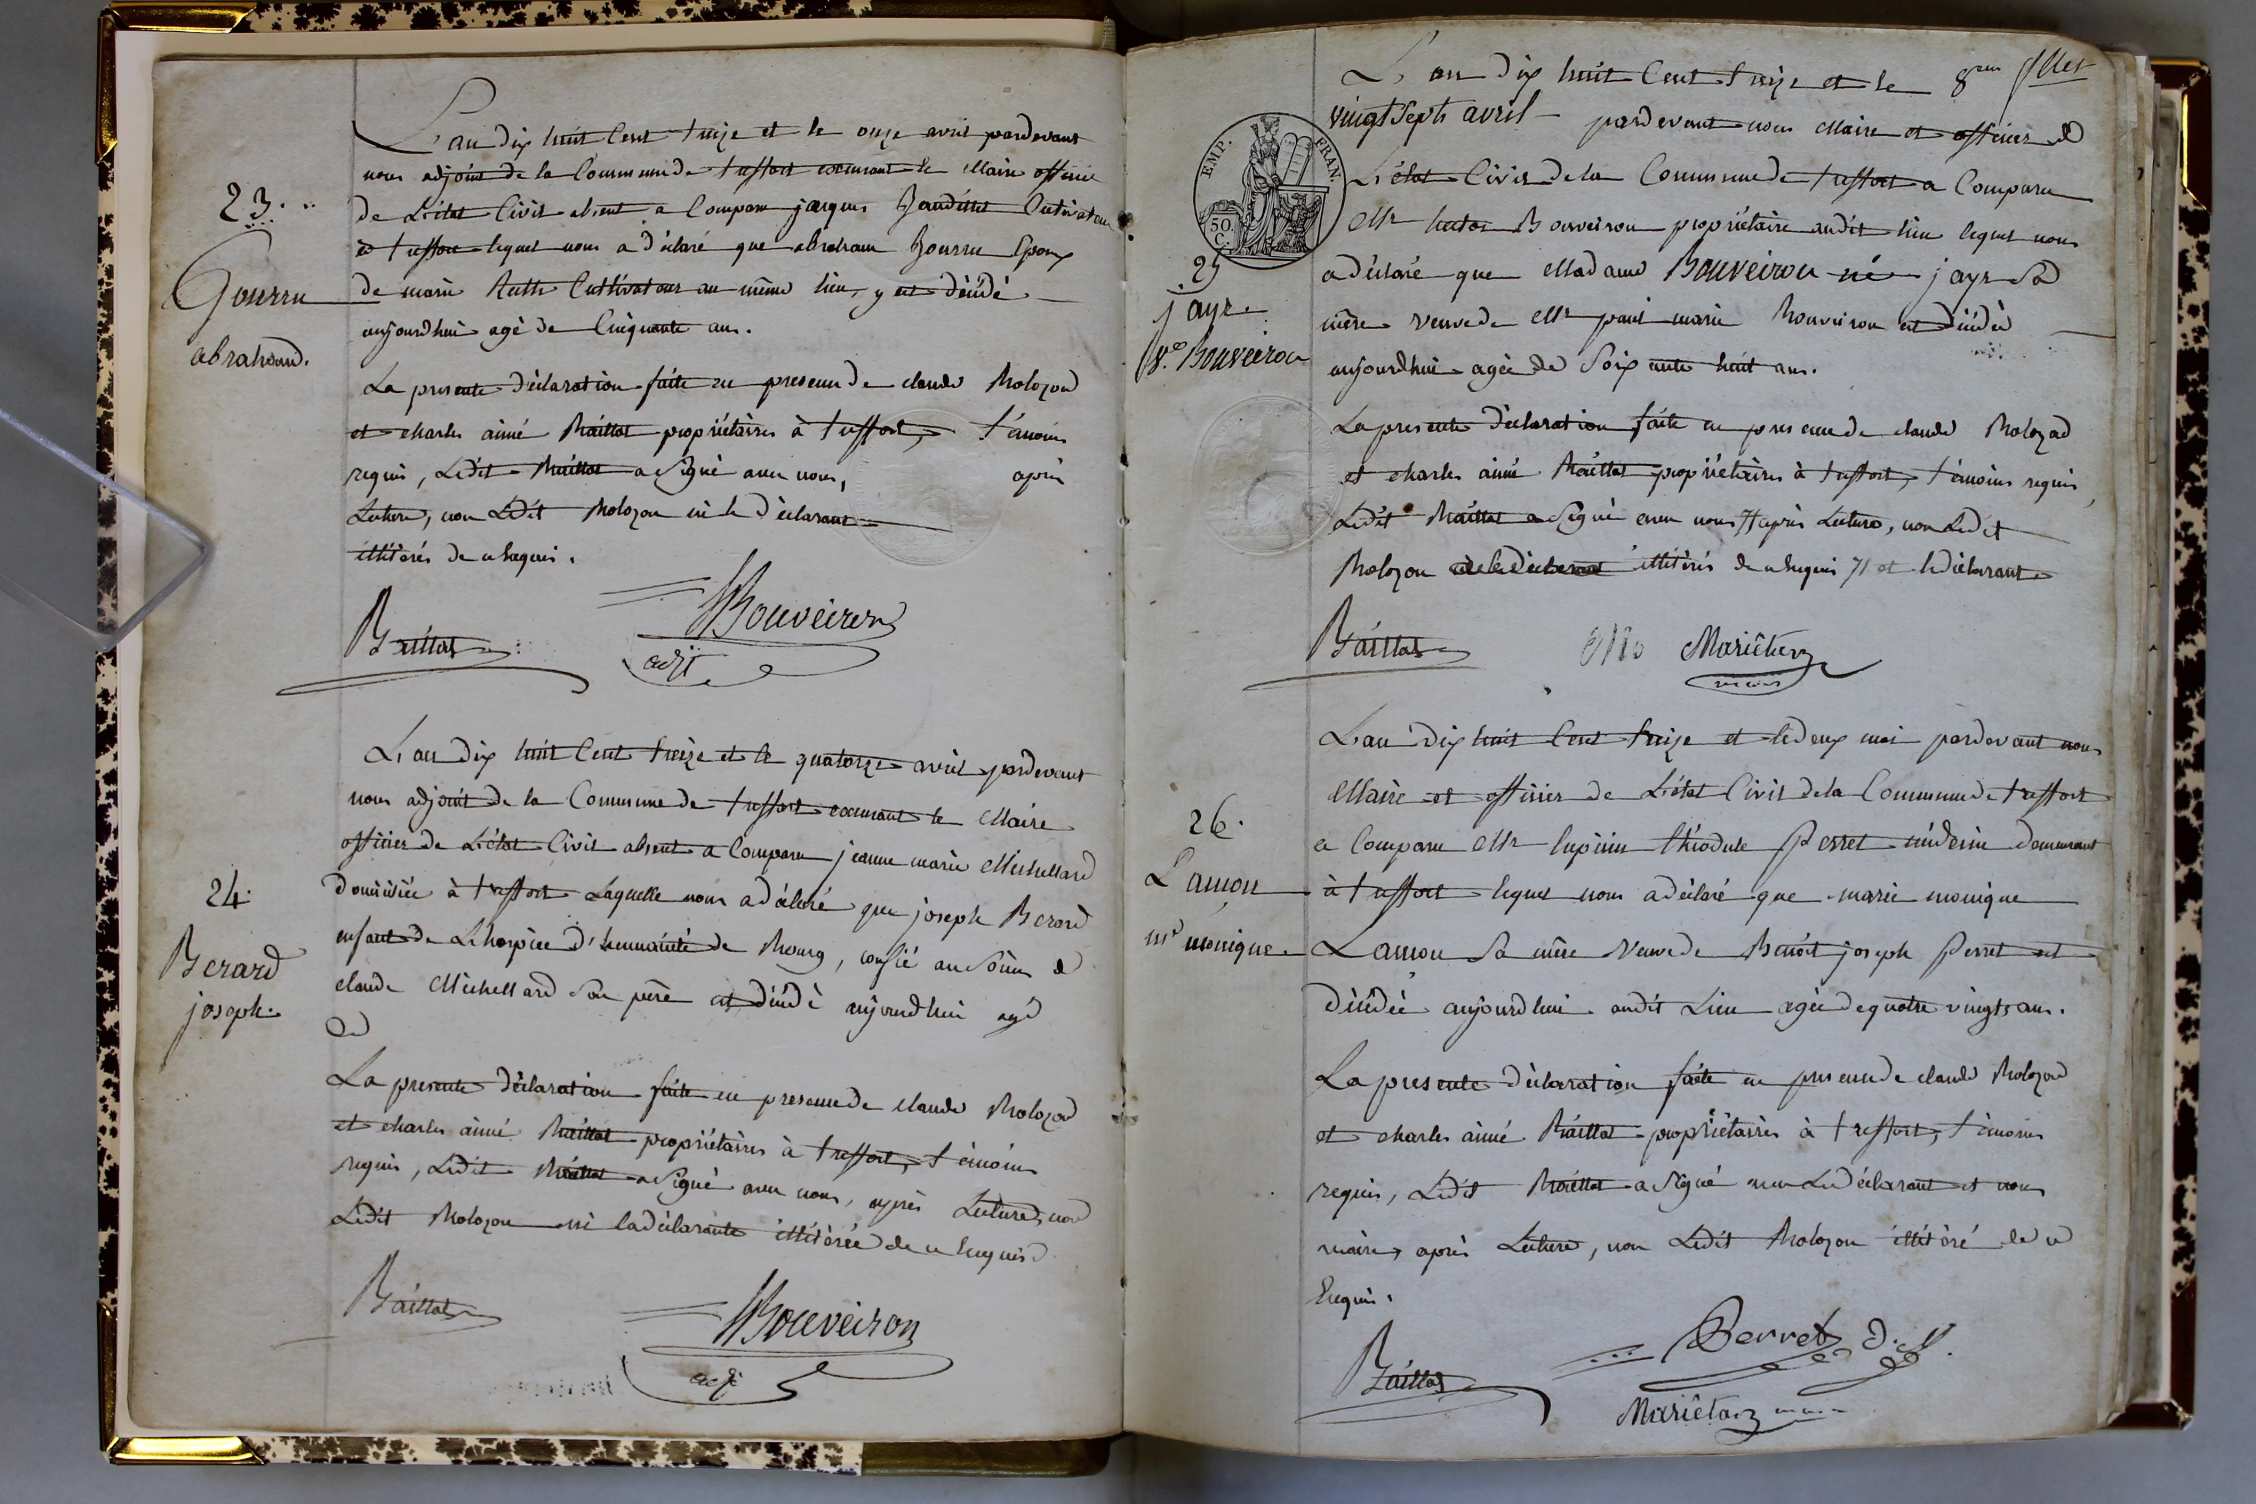 23.
Gourru
abraham.
L'an dix huit Cent treize et le onze avril pardevant
nous adjoint de la Commune de treffort exerçant le Maire officier
de L'état Civil absent a Comparu jacques Cultivateur
à treffort lequel nous a déclaré que abraham Gourru Epoux
de marie Cultivateur au même lieu, y est décédé
aujourdhui agé de Cinquante ans.
La presente déclaration faite en presence de claude Bolozon
et charles aimé Baillat propriétaires à treffort, témoins
requis, Ledit Baillat a Signé avec nous, après
Lecture, non Ledit Bolozon ni le déclarant
illitérés de ce Enquis.
Baillat
HBouveiron
adjt
24.
Berard
joseph.
L'an dix huit Cent treize et le quatorze avril pardevant
nous adjoint de la Commune de treffort exerçant le Maire
officier de L'état Civil absent a Comparu jeanne marie Michellard
Domiciliée à treffort Laquelle nous a déclaré que joseph Berard
enfant de L'hospice d'humanité de Bourg, confié au Soins de
claude Michellard Son père est décédé aujourdhui agé
de
La presente déclaration faite en presence de claude Bolozon
et charles aimé Baillat propriétaires à treffort, témoins
requis, Ledit Baillat a Signé avec nous, après Lecture, non
Ledit Bolozon ni la déclarante illitérée de ce Enquis
Baillat
HBouveiron
adjt
8me fllet
EMP. FRAN.
50 C.
25
jayr
Ve. Bouveiron
L'an dix huit Cent treize et le
vingt Sept avril pardevant nous Maire et officier de
L'état Civil de la Commune de treffort a Comparu
Mr hector Bouveiron propriétaire audit lieu lequel nous
a déclaré que Madame Bouveiron née jayr Sa
mère Veuve de Mr paul marie Bouveiron est décédée
aujourdhui agée de Soixante huit ans.
La presente déclaration faite en presence de claude Bolozon
et charles aimé Baillat propriétaires à treffort, témoins requis
Ledit Baillat a Signé avec nous après Lecture, non Ledit
Bolozon ni le déclarant illitérés de ce Enquis et le déclarant
Baillat
Mariéton
26.
Lamou
me monique
L'an dix huit Cent treize et le deux mai pardevant nous
Maire et officier de L'état Civil de la Commune de treffort
a Comparu Mr lupicin théodule Perret médecin demeurant
à treffort lequel nous a déclaré que marie monique
Lamou Sa mère Veuve de Benoit joseph Perret est
décédée aujourdhui audit Lieu agée de quatre vingts ans.
La presente déclaration faite en presence de claude Bolozon
et charles aimé Baillat propriétaires à treffort, témoins
requis, Ledit Baillat a Signé avec Le déclarant et nous
maire, après Lecture, non Ledit Bolozon illitéré de ce
Enquis.
Perret D.M.
Baillat
Mariéton